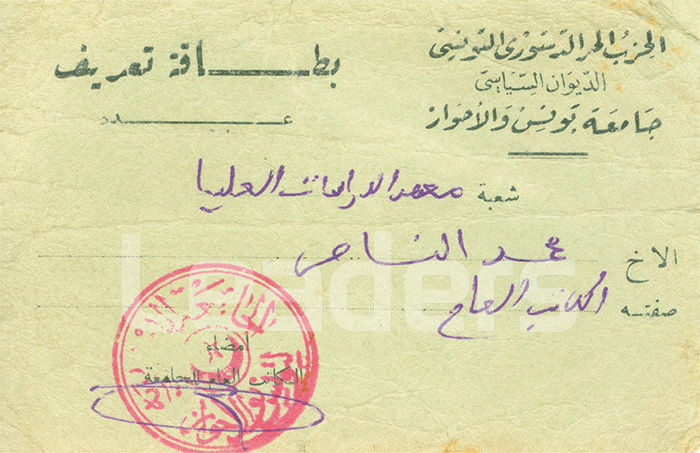 الحزب الحر الدستوري التونسي
الديوان السياسي
جامعة تونس والأحواز
بطاقة تعريف
عدد
شعبة معهد الدراسات العليا
الاخ محمد الناصر
صفته الكاتب العام
امضاء
الكاتب العام للجامعة
Leaders